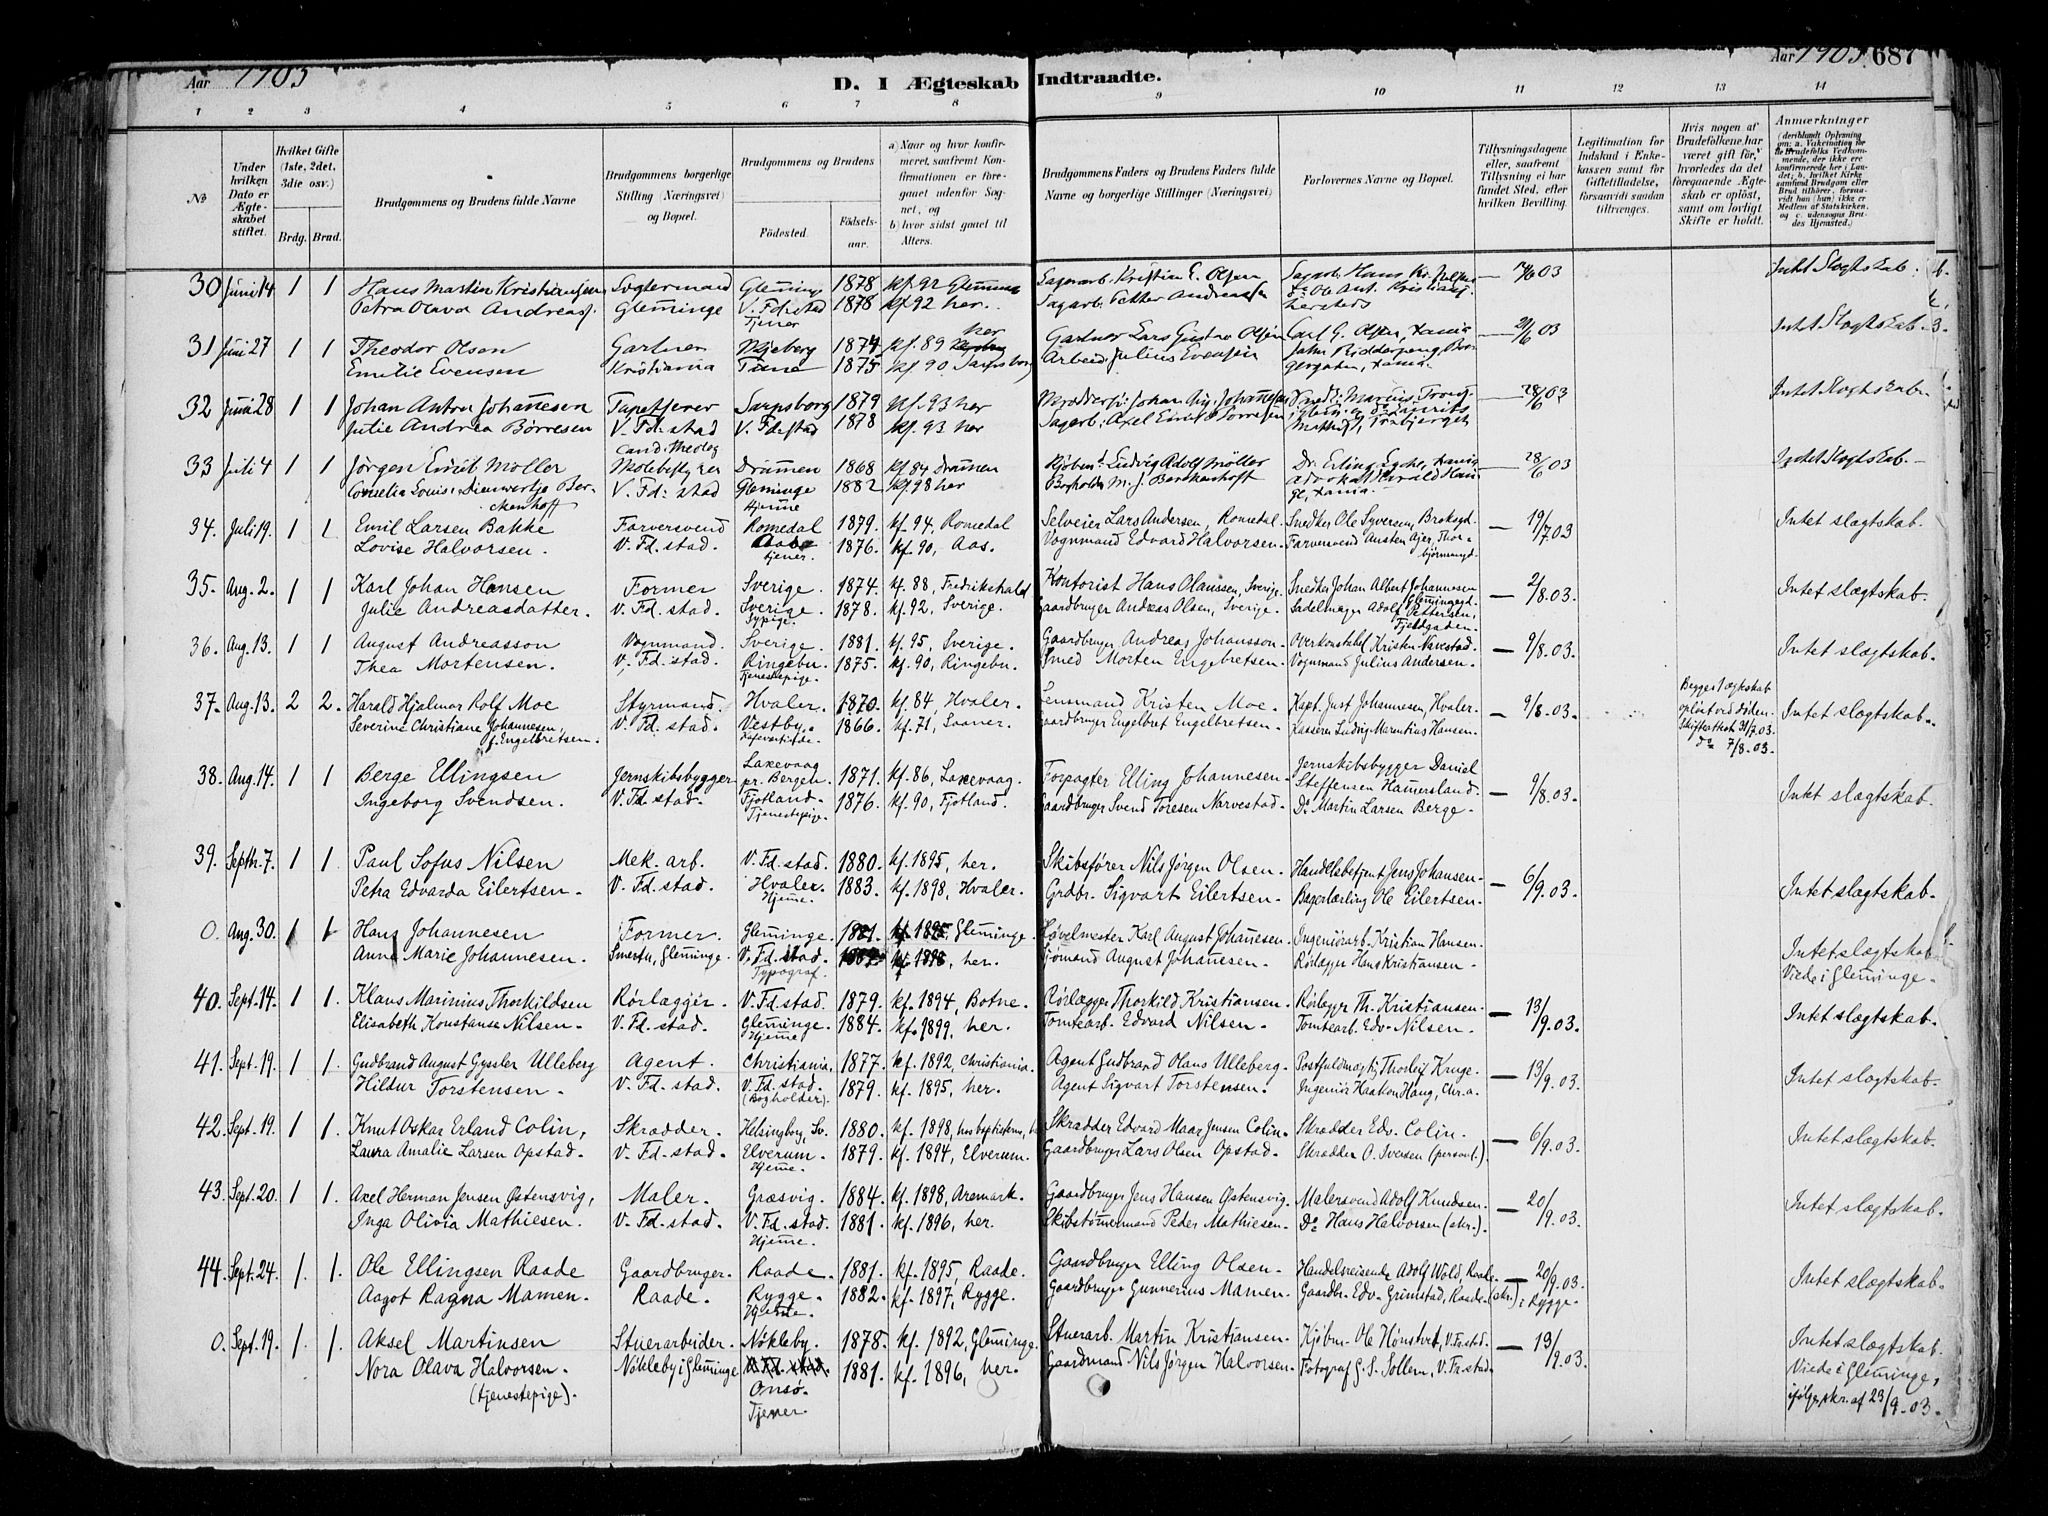 Aar 1903
D. I Ægteskab Indtraadte.
Aar 1903. 687
1 2 3 4 5 6 7 8 9 10 11 12 13 14
No
Under hvilken Dato er Ægteskabet stiftet.
Hvilket Gifte (1ste, 2det, 3die osv.)
Brdg. Brud.
Brudgommens og Brudens fulde Navne
Brudgommens borgerlige Stilling (Næringsvei) og Bopæl.
Brudgommens og Brudens
Fødested. Fødselsaar.
a) Naar og hvor konfirmeret, saafremt Konfirmationen er foregaaet udenfor Sognet, og
b) hvor sidst gaaet til Alters.
Brudgommens Faders og Brudens Faders fulde Navne og borgerlige Stillinger (Næringsvei)
Forlovernes Navne og Bopæl.
Tillysningsdagene eller, saafremt Tillysning ei har fundet Sted, efter hvilken Bevilling.
Legitimation for Indskud i Enkekassen samt for Giftetilladelse, forsaavidt saadan tiltrænges.
Hvis nogen af Brudefolkene har været gift før, hvorledes da det foregaaende Ægteskab er opløst, samt om lovligt Skifte er holdt.
Anmærkninger
30 Juni 14 1 1 Hans Martin Kristiansen Glemminge 1878 kf. 92 Glemminge Sagarb. Kristian E. Olsen 03 Intet Slægtskab.
Petra Olava Andreas. Glemminge V. Fd.stad 1878 kf. 92 her. Sagarb. Petter Andreassen
Tjener
31 Juni 27 1 1 Theodor Olsen Gartner Skjeberg 1874 kf. 89 her Gartner Lars Gustav Olsen Carl G. Olsen, 03 Intet Slægtskab.
Emilie Evensen Kristiania Tune 1875 kf. 90 Sarpsborg Arbeid. Julius Evensen
32 Juni 28 1 1 Johan Anton Johannesen Tapetserer Sarpsborg 1879 kf. 93 her 28/6 03 Intet Slægtskab.
Julie Andrea Børresen V. Fd. stad V. Fd. stad 1878 kf. 93 her Sagarb. Axel Emil Børresen
cand. theolog
33 Juli 4 1 1 Jørgen Emil Møller Skolebestyrer Drammen 1868 kf. 84 Drammen Kjøbm. Ludvig Adolf Møller 28/6 03 Intet Slægtskab.
V. Fd. stad Glemminge 1882 kf. 98 her
Hjemme
34. Juli 19. 1 1 Emil Larsen Bakke Farversvend Romedal 1879. kf. 94, Romedal Selveier Lars Andersen, Romedal. Snedker Ole Syversen, — 19/7.03 Intet slægtskab.
Lovise Halvorsen. V. Fd. stad. Aas 1876. kf. 90, Aas. Vognmand Edvard Halvorsen.
tjener.
35. Aug. 2. 1 1 Karl Johan Hansen Former Sverige. 1874. kf. 88, Fredrikshald Kontorist Hans Olaussen, Sverige. Snedker Johan Albert Johannesen — 2/8.03. Intet slægtskab.
Julie Andreasdatter. V. Fd. stad. Sverige. 1878. kf. 92, Sverige. Gaardbruger Andreas Olsen, Sverige. Sadelmager Adolf Pettersen,
Sypige. Fjeldgaden.
36. Aug. 13. 1 1 August Andreasson Vognmand. Sverige. 1881. kf. 95, Sverige. Gaardbruger Andreas Johansson. Overkonstabel Kristen Navestad. — 9/8.03. Intet slægtskab.
Thea Mortensen. V. Fd. stad. Ringebu. 1875. kf. 90, Ringebu. Smed Morten Engebretsen. Vognmand Julius Andersen.
Tjenestepige.
37. Aug. 13. 2 2. Harald Hjalmar Rolf Moe Styrmand. Hvaler. 1870. kf. 84, Hvaler. Lensmand Kristen Moe. Kapt. Just Johannesen, Hvaler. — 9/8.03. Begges 1. ægteskab opløst ved døden. Skifteattest 31/7.03. do 7/8.03. Intet slægtskab.
Severine Christiane Johannesen, f. Engelbretsen. V. Fd. stad. Vestby. 1866. kf. 71, Gaardbruger Engelbret Engelbretsen. Kasserer Ludvig Marentius Hansen.
38. Aug. 14. 1 1 Berge Ellingsen Jernskibsbygger Laxevaag pr. Bergen. 1871. kf. 86, Laxevaag. Forpagter Elling Johannesen. Jernskibsbygger Daniel Steffensen Hamersland. — 9/8.03. Intet slægtskab.
Ingeborg Svendsen. V. Fd. stad. Fjotland. 1876. kf. 90, Fjotland. Gaardbruger Svend Toresen Narvestad. Do Martin Larsen Berge.
Tjenestepige.
39. Septb. 7. 1 1. Paul Sofus Nilsen Mek. arb. V. Fd. stad. 1880. kf. 1895, her. Skibsfører Nils Jørgen Olsen. Handelsbetjent Jens Johansen. — 6/9.03. Intet slægtskab.
Petra Edvarda Eilertsen. V. Fd. stad. Hvaler. 1883. kf. 1898, Hvaler. Grdbr. Sigvart Eilertsen. Bagerlærling Ole Eilertsen.
Hjemme.
0. Aug. 30. 1 1 Hans Johannesen Former. Glemminge. 1881. kf. 1895, Glemminge. Høvelmester Karl August Johannesen. Ingeniørarb. Kristian Hansen. Intet slægtskab.
Anna Marie Johannesen. Smertu, Glemminge. V. Fd. stad. kf. 1898, her. Sjømand August Johannesen. Rørlægger Hans Kristiansen. Viede i Glemminge.
Typograf.
40. Sept. 14. 1 1. Klaus Marinius Thorkildsen Rørlægger. V. Fd. stad. 1879. kf. 1894, Botne. Rørlægger Thorkild Kristiansen. Rørlægger Th. Kristiansen. — 13/9.03. Intet slægtskab.
Elisabeth Konstanse Nilsen. V. Fd. stad. Glemminge. 1884. kf. 1899, her. Tomtearb. Edvard Nilsen. Tomtearb. Edv. Nilsen.
Hjemme
41. Sept. 19. 1 1. Gudbrand August Gyssler Ulleberg Agent. Christiania. 1877. kf. 1892, Christiania. Agent Gudbrand Olaus Ulleberg. Postfuldmægtig Thorleif Kruge. — 13/9.03. Intet slægtskab.
Hildur Torstensen. V. Fd. stad. V. Fd. stad. 1879. kf. 1895, her. Agent Sigvart Torstensen. Ingeniør Haakon Haug, Chr.a.
(Bogholder).
42. Sept. 19. 1 1. Knut Oskar Erland Colin, Skrædder. Helsingborg, Sv. 1880. kf. 1898, hos baptisterne, Skrædder Edvard Maar Jensen Colin. Skrædder Edv. Colin. — 6/9.03. Intet slægtskab.
Laura Amalie Larsen Opstad. V. Fd. stad. Elverum. 1879. kf. 1894, Elverum. Gaardbruger Lars Olsen Opstad. Skrædder O. Iversen (personl.).
Hjemme.
43. Sept. 20. 1 1. Axel Herman Jensen Østensvig, Maler. Græsvig. 1884. kf. 1898, Aremark. Gaardbruger Jens Hansen Østensvig. Malersvend Adolf Knudsen. — 20/9.03. Intet slægtskab.
Inga Olivia Mathiesen. V. Fd. stad. V. Fd. stad. 1881. kf. 1896, her. Skibstømmermand Peder Mathiesen. Do Hans Halvorsen (skr.).
Hjemme.
44. Sept. 24. 1. 1. Ole Ellingsen Raade Gaardbruger. Raade. 1881. kf. 1895, Raade. Gaardbruger Elling Olsen. Handelsreisende Adolf Wold, Raade. (skr.) — 20/9.03. i Rygge. Intet slægtskab.
Aagot Ragna Mamen. Raade. Rygge. 1882. kf. 1897, Rygge. Gaardbruger Gunnerius Mamen. Gaardbr. Edv. Grimstad, Raade.
Hjemme.
0. Sept. 19. 1. 1. Aksel Martinsen Stuerarbeider. Nøkleby. 1878. kf. 1892, Glemminge. Stuerarb. Martin Kristiansen. Kjøbm. Ole Hønstvet, V. Fr.stad. — 13/9.03. Intet slægtskab.
Nora Olava Halvorsen. Nøkleby i Glemminge Onsø. 1881. kf. 1896, her. Gaardmand Nils Jørgen Halvorsen. Fotograf G. S. Sollem, V. Fr.stad. Viede i Glemminge,
(tjenestepige). Tjener. ifølge skr. af 23/9.03.